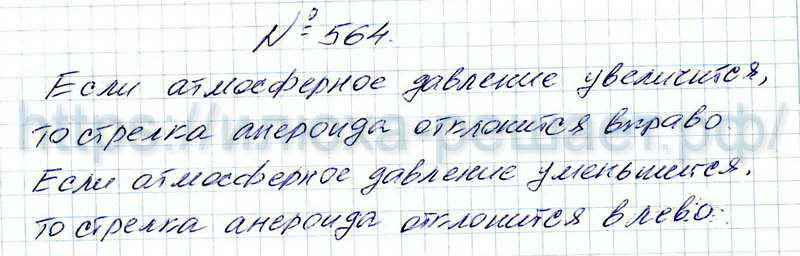 № 564.
Если атмосферное давление увеличится,
то стрелка анероида отклонится вправо.
Если атмосферное давление уменьшится,
то стрелка анероида отклонится влево.